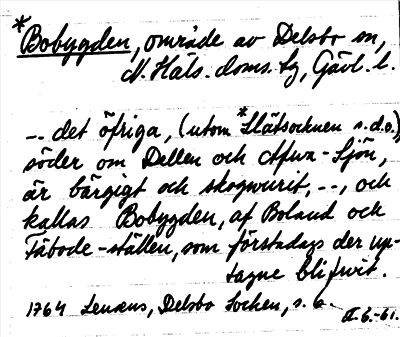 *Bobygden, område av Delsbo sn,
N. Häls. doms. hg, Gävl. l.
-- det öfriga, (utom *Slätsocknen s.d.o.)
söder om Dellen och Afwa-Sjön,
är bärgigt och skogwurit, --, och
kallas Bobygden, af Boland och
Fäbode-ställen, som förstadags der up-
tagne blifwit.
1764 Lenæus, Delsbo Socken, s. 6.
-61.